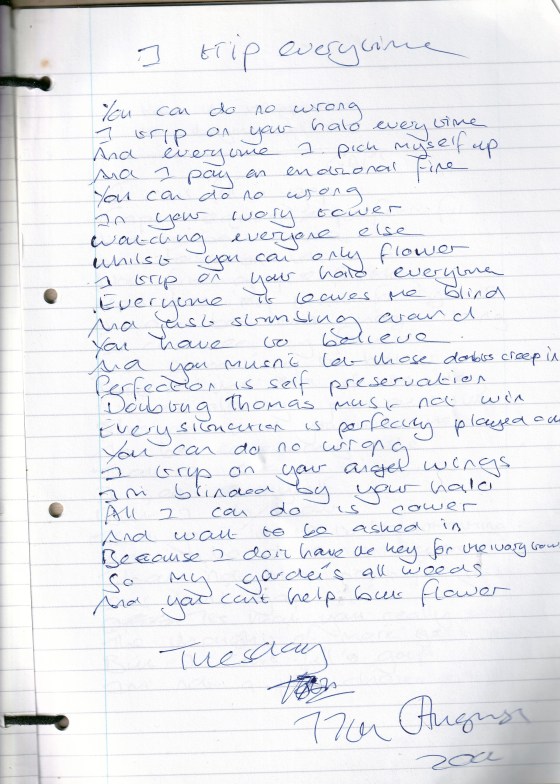 I trip everytime
You can do no wrong
I trip on your halo everytime
And everytime I pick myself up
And I pay an emotional fine
You can do no wrong
In your ivory tower
Watching everyone else
Whilst you can only flower
I trip on your halo everytime
Everytime it leaves me blind
And just stumbling around
You have to believe
And you musn't let those doubts creep in
Perfection is self preservation
Doubting Thomas must not win
Every situation is perfectly played
You can do no wrong
I trip on your angel wings
I'm blinded by your halo
All I can do is cower
And wait to be asked in
Because I don't have the key for the ivory
So my garden's all weeds
And you can't help but flower
Tuesday
August